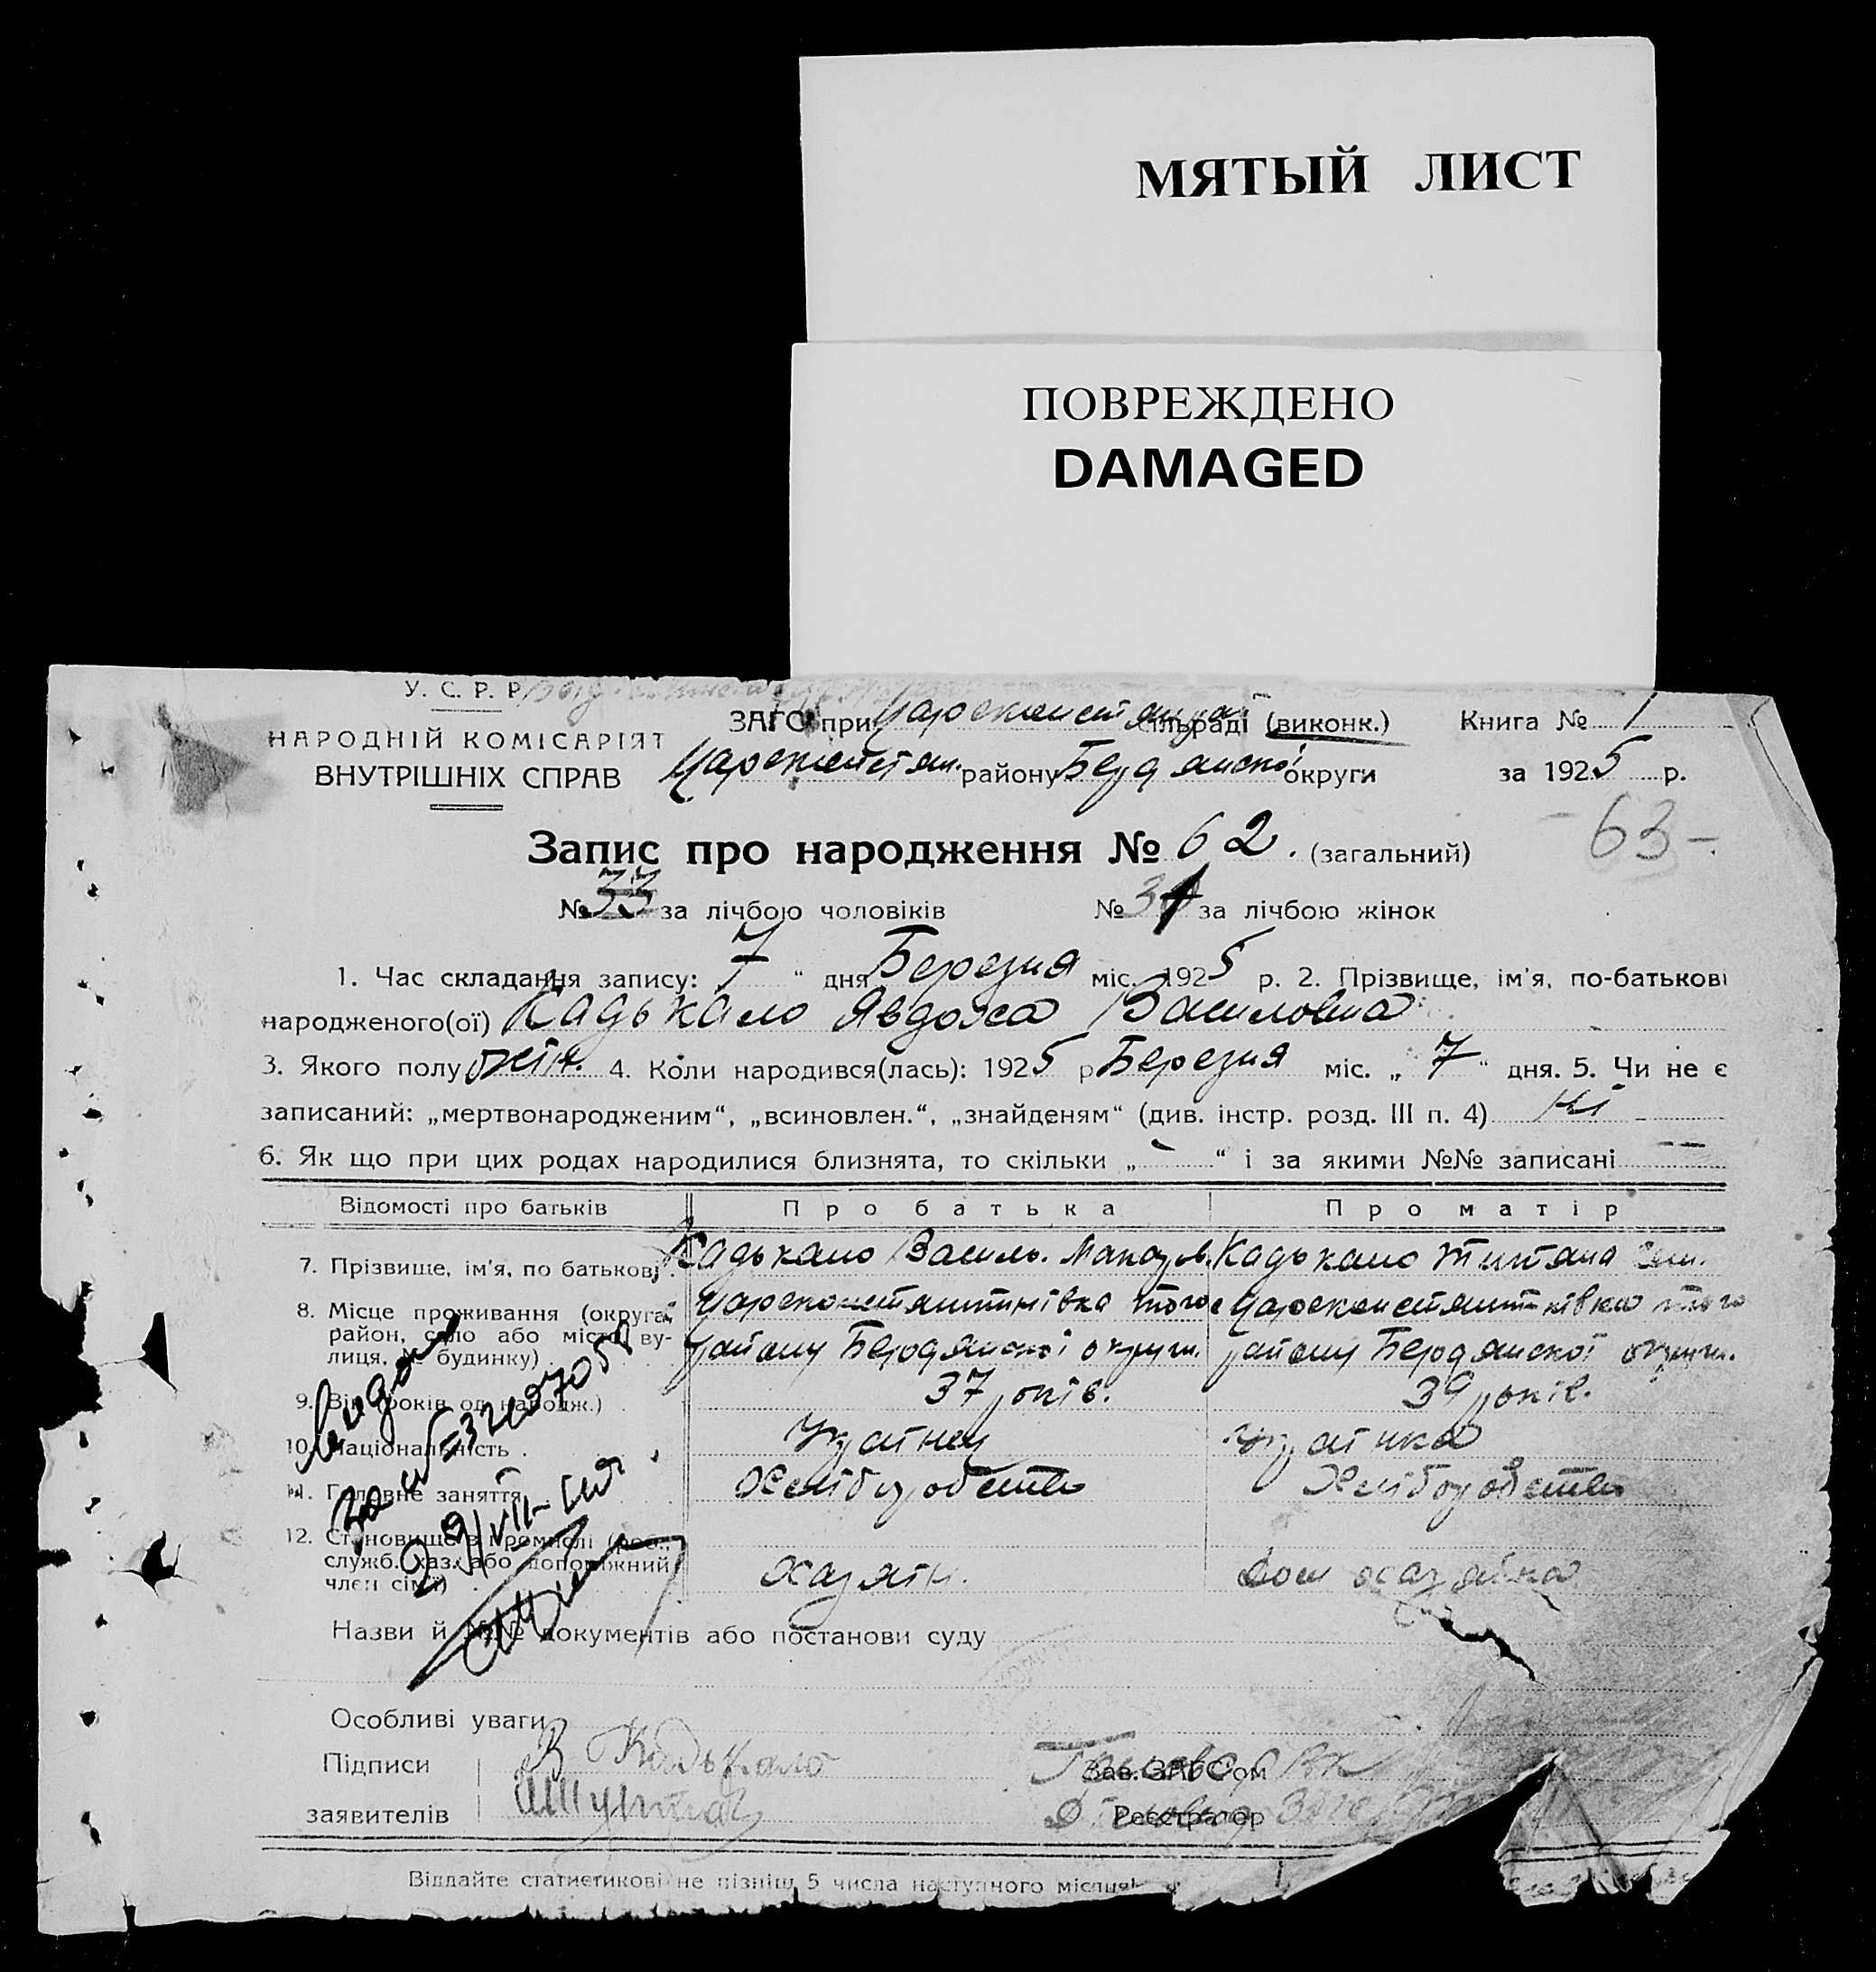 МЯТЫЙ ЛИСТ
ПОВРЕЖДЕНО
DAMAGED
У. С. Р. Р.
НАРОДНІЙ КОМІСАРІЯТ
ВНУТРІШНІХ СПРАВ
ЗАГС при Царсконстян сільраді (виконк.) Книга № 1
Царсконстян. району Бердянської округи за 1925 р.
Запис про народження № 62. (загальний)
63
№ 33 за лічбою чоловіків № за лічбою жінок
1. Час складання запису: 7 " дня Березня міс. 1925 р. 2. Прізвище, ім'я, по-батькові
народженого(ої) Кадькало Явдоха Василовна
3. Якого полу жін. 4. Коли народився(лась): 1925 р Березня міс. „ 7 " дня. 5. Чи не є
записаний: „мертвонародженим", „всиновлен.", „знайденям" (див. інстр. розд. III п. 4) Ні
6. Як що при цих родах народилися близнята, то скільки „ — " і за якими №№ записані —
Відомості про батьків Про батька Про матір
7. Прізвище, ім'я, по батькові Кадькало Василь. Кадькало Титяна
8. Місце проживання (округа, район, село або місто, вулиця, № будинку) Царсконстянтинівка того району Бердянської округи. Царсконстянтинівка того району Бердянської округи.
9. Вік (років од народж.) 37 років. 39 років.
10. Національність Украінец украінка
11. Головне заняття Хліборобство Хліборобство
12. Становище в промислі (роб., служб. хаз. або допоміжний член сім'ї) Хазяїн. Дом хазяйка
Видан
за
Назви й №№ документів або постанови суду
Особливі уваги
Підписи В Кадькало Голова Рвк Зав. ЗАГСом
заявителів Реєстратор
Віддайте статистикові не пізніш 5 числа наступного місяця!